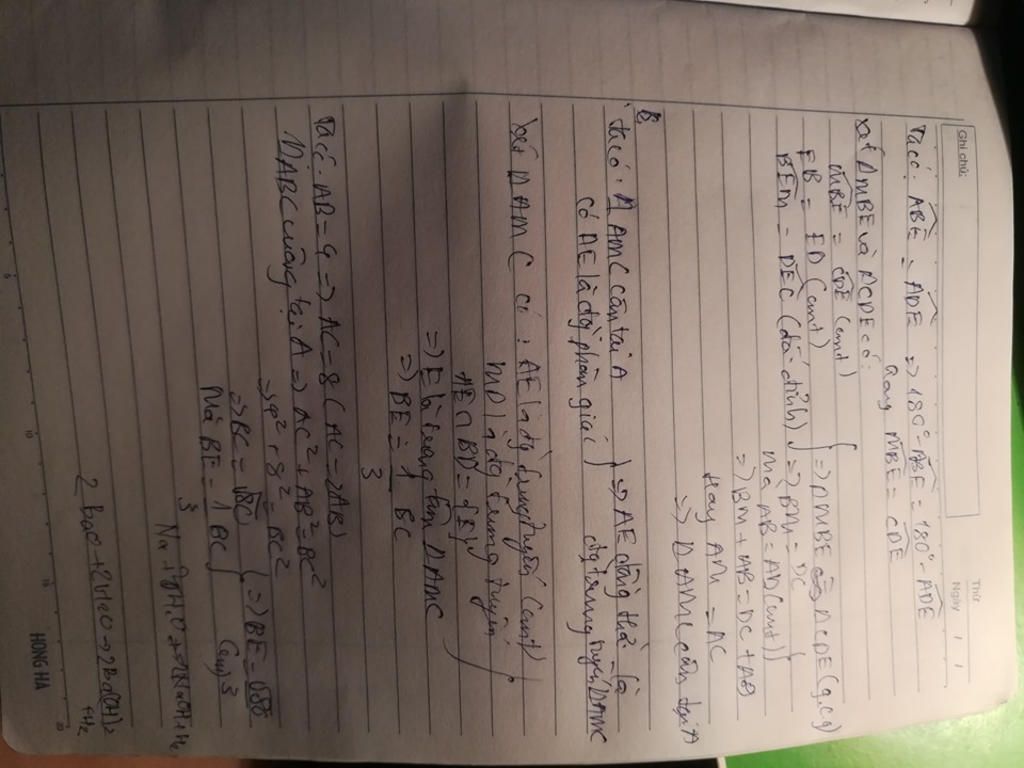 Ghi chú:
Thứ
Ngày / /
Ta có: ABE = ADE => 180° - ABE = 180° - ADE
Hay MBE = CDE
Xét Δ MBE và ΔCDE có:
MBE = CDE (cmt)
EB = ED (cmt)
BEM = DEC (đối đỉnh)
=> ΔMBE = ΔCDE (g.c.g)
=> BM = DC
mà AB = AD (cmt)
=> BM + AB = DC + AD
Hay AM = AC
=> Δ AMC cân tại A
Ta có: Δ AMC cân tại A
có AE là đg phân giác
=> AE đồng thời là
đg trung tuyến ΔAMC
Xét Δ AMC có: AE là đg trung tuyến (cmt)
MD là đg trung tuyến
AE ∩ BD = {E}
=> E là trọng tâm ΔAMC
=> BE = 1 BC
3
Ta có: AB = 4 => AC = 8 (AC = 2AB)
ΔABC vuông tại A => AC² + AB² = BC²
=> 4² + 8² = BC²
=> BC = √80
Mà BE = 1 BC
3
(cmt)
=> BE = √80
3
2
HONG HA